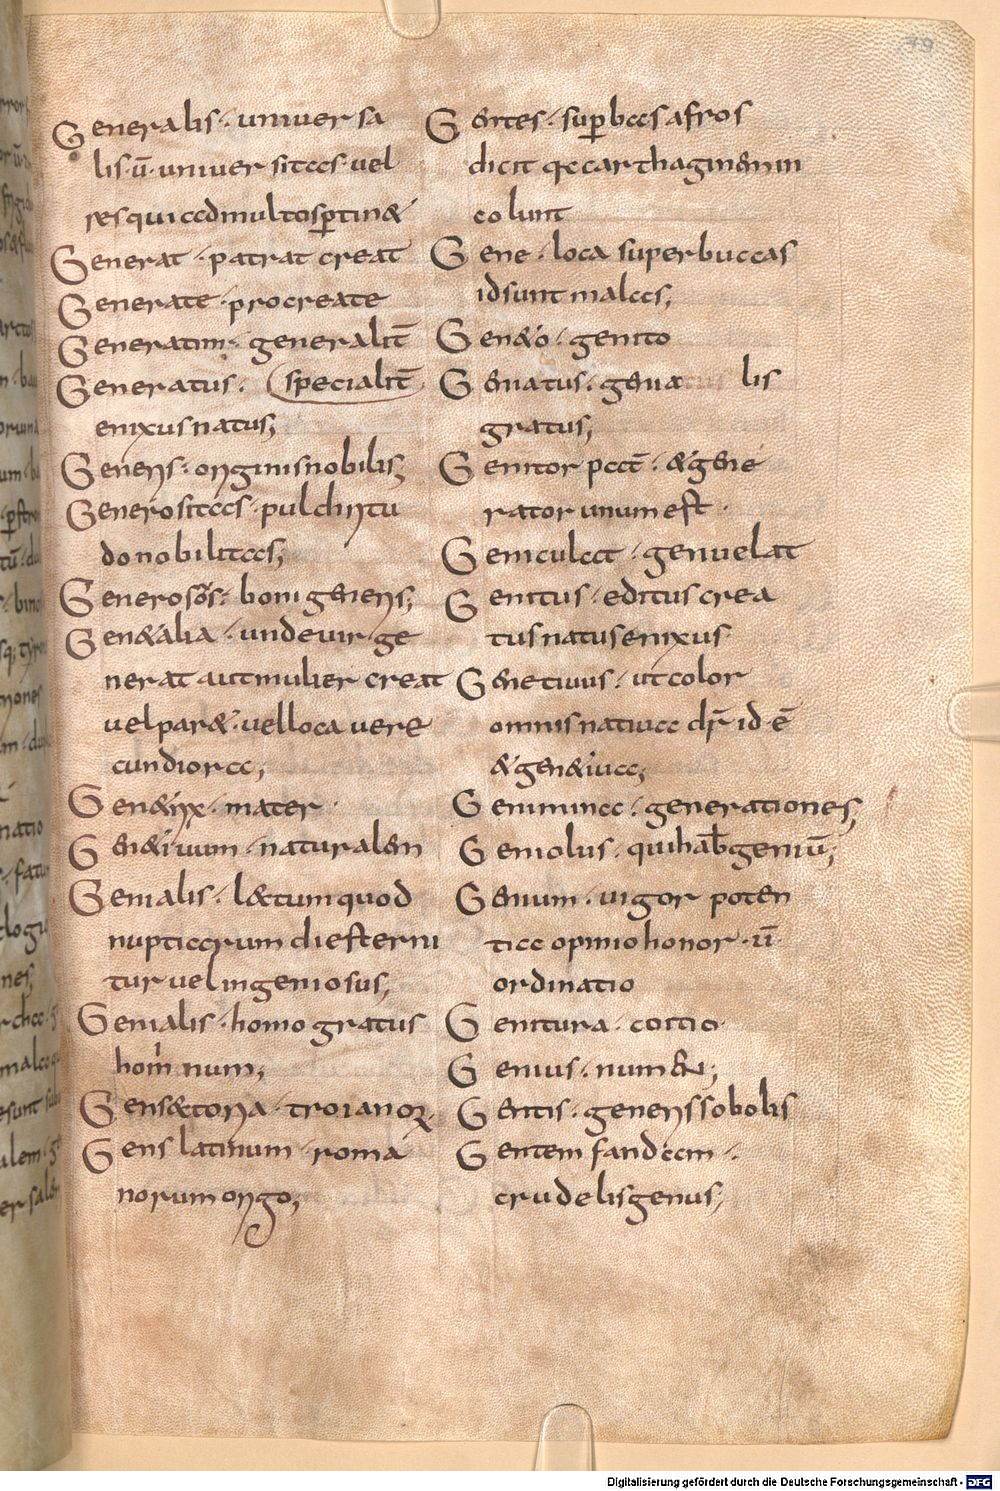 79
Generalis · univer sa
lis · ū · univer sitas · vel
res qui ad multos ꝑtin&
Generat · patrat creat
Generate · procreate
Generatim · generalit̄
Generatus · specialit̄
enixus natus;
Generis · originis nobilis;
Generositas · pulchritu
do nobilitas;
Generosos · boni generis;
Gen&alia · unde vir ge
nerat aut mulier creat
vel par& · vel loca vere
cundiora;
Gen&rix · mater ·
Gen&ivum · naturalem
Genialis · lectum quod
nuptiarum die sterni
tur vel ingeniosus;
Genialis · homo gratus
hominum;
Gens &toria · troianoꝝ
Gens latinum · roma
norum origo;
Gentes · suꝑ bas afros
dicit q̄ carthaginem in
colunt
Gene · loca super buccas
id sunt malas;
Gen&o · genito
Genatus · gena lis
gratus;
Genitor pat̄ · & gene
rator unum est ·
Geniculat · genu velat
Genitus · editus crea
tus natus enixus
Genetivus · ut color
omnis nativa dr̄ id ē
& gen&iva;
Genimina · generationes;
Geniolus · qui hab̄ geniū;
Genium · vigor poten
tia opinio honor · ū ·
ordinatio
Genitura · coitio
Genius · numen;
Gentis · generis sobolis
Gentem fandam ·
crudelis genus;
Digitalisierung gefördert durch die Deutsche Forschungsgemeinschaft - DFG